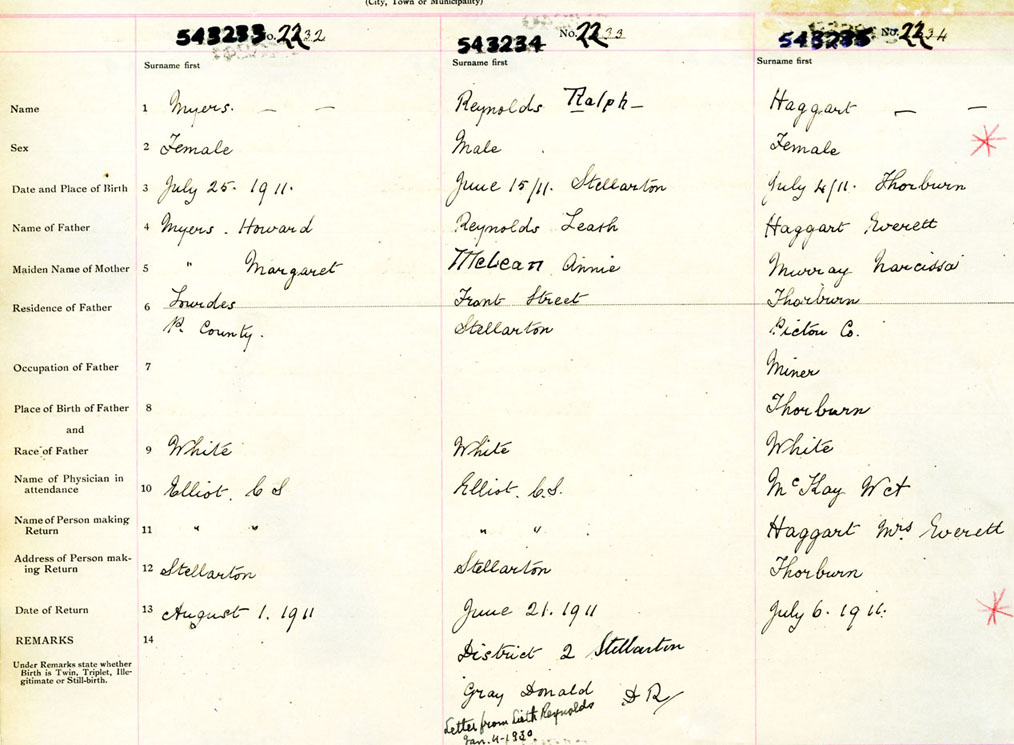 (City, Town or Municipality)
543233 No. 2232 543234 No. 2233 543235 No. 2234
Surname first Surname first Surname first
Name 1 Myers. — — Reynolds Ralph — Haggart — —
Sex 2 Female Male . Female
Date and Place of Birth 3 July 25. 1911. June 15/11. Stellarton July 4/11. Thorburn
Name of Father 4 Myers. Howard Reynolds Leath Haggart Everett
Maiden Name of Mother 5 " Margaret McLean Annie Murray Narcissa
Residence of Father 6 Lourdes Front Street Thorburn
P. County. Stellarton Pictou Co.
Occupation of Father 7 Miner
Place of Birth of Father 8 Thorburn
and
Race of Father 9 White White White
Name of Physician in
attendance 10 Elliot. C S Elliot. C.S. McKay
Name of Person making
Return 11 " " " " Haggart Mrs Everett
Address of Person mak-
ing Return 12 Stellarton Stellarton Thorburn
Date of Return 13 August 1. 1911 June 21. 1911 July 6. 1911.
REMARKS 14 District 2 Stellarton
Under Remarks state whether
Birth is Twin, Triplet, Ille-
gitimate or Still-birth.
Gray Donald D R/
Letter from Reynolds
Jan. 4-1930.